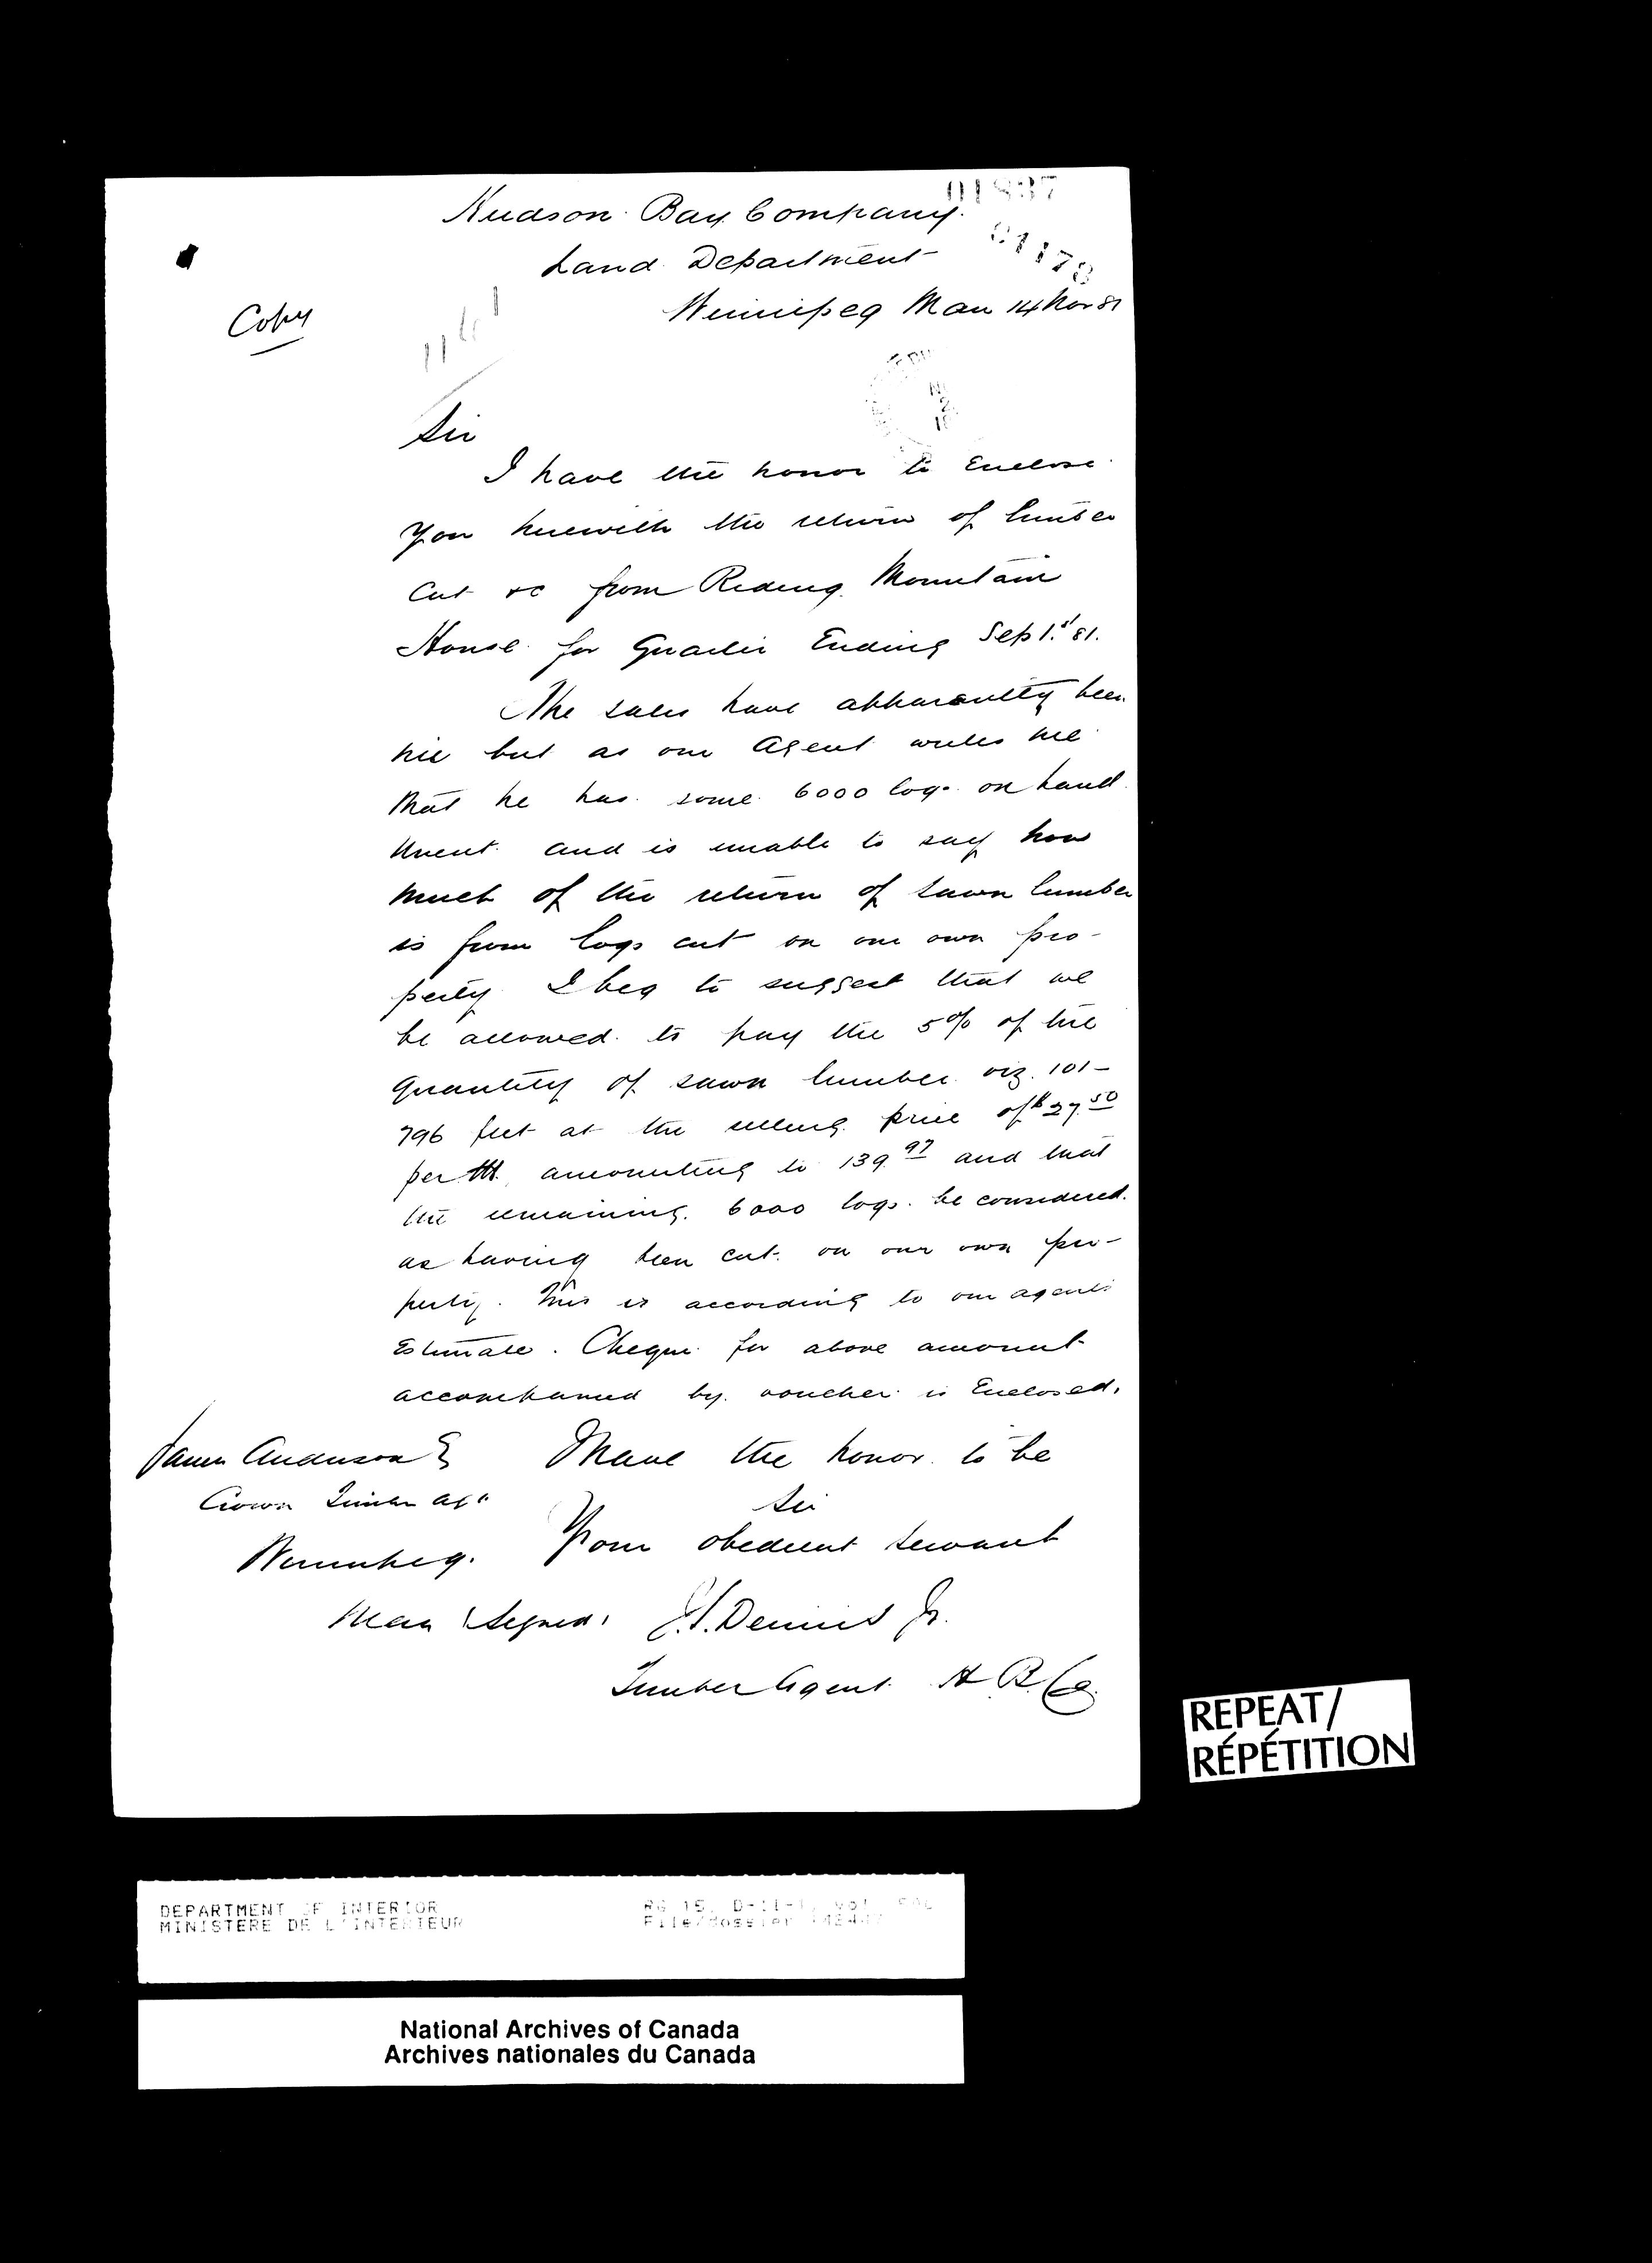 01837
Hudson Bay Company.
Land Department
Winnipeg Man 14 Nov 81
Copy
Sir
I have the honor to Enclose
You herewith the return of lumber
Cut &c from Riding Mountain
House for Quarter Ending Sep 1st 81.
The sales have apparently been
nil but as our Agent writes me
that he has some 6000 logs on hand
uncut and is unable to say how
much of the return of sawn lumber
is from logs cut on our own pro-
perty I beg to suggest that we
be allowed to pay the 5% of the
quantity of sawn lumber viz. 101-
796 feet at the selling price of $27.50
per M. amounting to 139.97 and that
the remaining 6000 logs be considered
as having been cut on our own pro-
perty. This is according to our agents
Estimate. Cheque for above amount
accompanied by voucher is Enclosed.
I have the honor to be
Sir
Your obedient servant
James Anderson
Crown Timber Agt
Winnipeg.
Man (Signed) J.S. Dennis Jr.
Timber Agent H B. Co.
REPEAT/
RÉPÉTITION
DEPARTMENT OF INTERIOR
MINISTERE DE L'INTERIEUR
RG 15, D-II-1, vol.
File/dossier
National Archives of Canada
Archives nationales du Canada